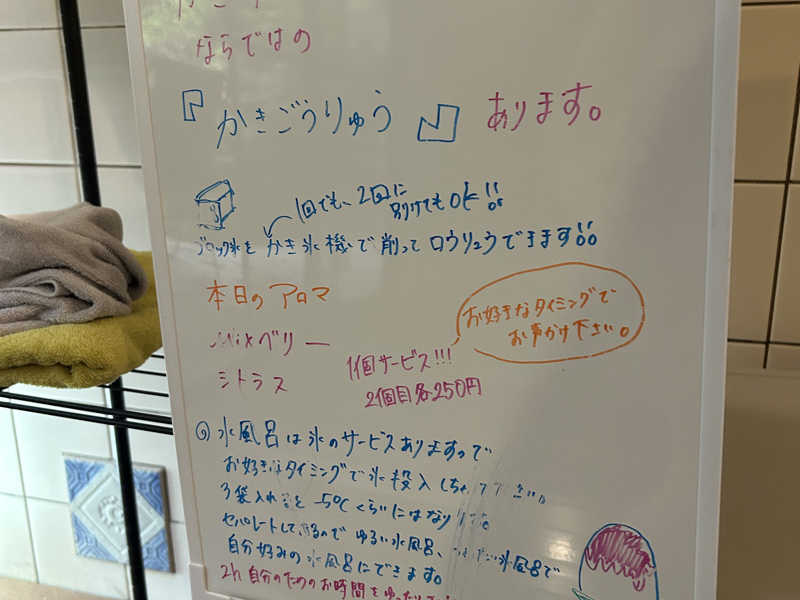 ならではの
『かきごうりゅう』あります。
1回でも、2回に
別けてもOK!!
ブロック氷をかき氷機で削ってロウリュウできます!!
本日のアロマ
Mixベリー
シトラス
1個サービス!!!
2個目各250円
お好きなタイミングで
お声かけ下さい。
水風呂は氷のサービスありますので
お好きなタイミングで氷投入しちゃって下さい。
3袋入れると -5℃くらいにはなります。
セパレートしてるので ゆるい水風呂、水風呂で
自分好みの水風呂にできます。
2h 自分のためのお時間を